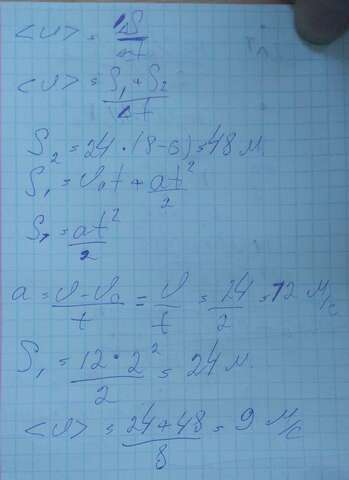 <υ> = ΔS/Δt
<υ> = S₁+S₂/Δt
S₂ = 24·(8-6) = 48 м
S₁ = υ₀t + at²/2
S₁ = at²/2
a = υ-υ₀/t = υ/t = 24/2 = 12 м/с
S₁ = 12·2²/2 = 24 м.
<υ> = 24+48/8 = 9 м/с